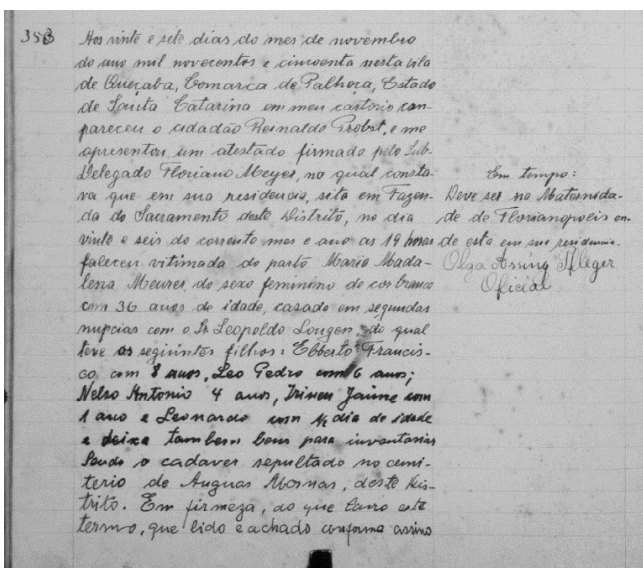 353
Aos vinte e sete dias do mes de novembro
do ano mil novecentos e cincoenta nesta vila
de Queçaba, Comarca de Palhoça, Estado
de Santa Catarina em meu cartorio com-
pareceu o cidadão Reinaldo Probst, e me
apresentou um atestado firmado pelo Sub-
Delegado Floriano Meyer, no qual consta-
va que em sua residencia, sita em Fazen-
da do Sacramento deste Distrito, no dia
vinte e seis do corrente mes e ano as 19 horas
faleceu vitimada do parto Maria Mada-
lena Meures, do sexo feminino de cor branca
com 36 anos de idade, casada em segundas
nupcias com o Sr Leopoldo Longen, do qual
teve os seguintes filhos: Egberto Francis-
co com 8 anos, Leo Pedro com 6 anos;
Nelso Antonio 4 anos, Irineu Jaime com
1 ano e Leonardo com ½ dia de idade
e deixa tambem bens para inventariar
Sendo o cadaver sepultado no cemi-
terio de Aguas Mornas, deste Dis-
trito. Em firmeza, do que lavro este
termo, que lido e achado conforme assino
Em tempo:
Deve ser na Maternida-
de de Florianopolis on-
de esta em sua residencia.
Olga Assing Pfleger
Oficial